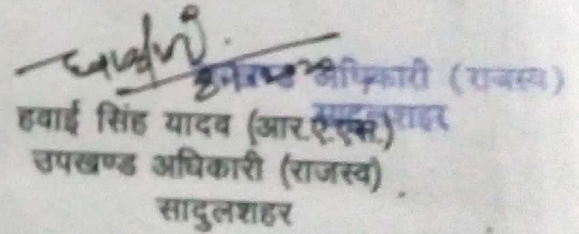 उपखण्ड अधिकारी (राजस्व)
सादुलशहर
हवाई सिंह यादव (आर.ए.एस.)
उपखण्ड अधिकारी (राजस्व)
सादुलशहर